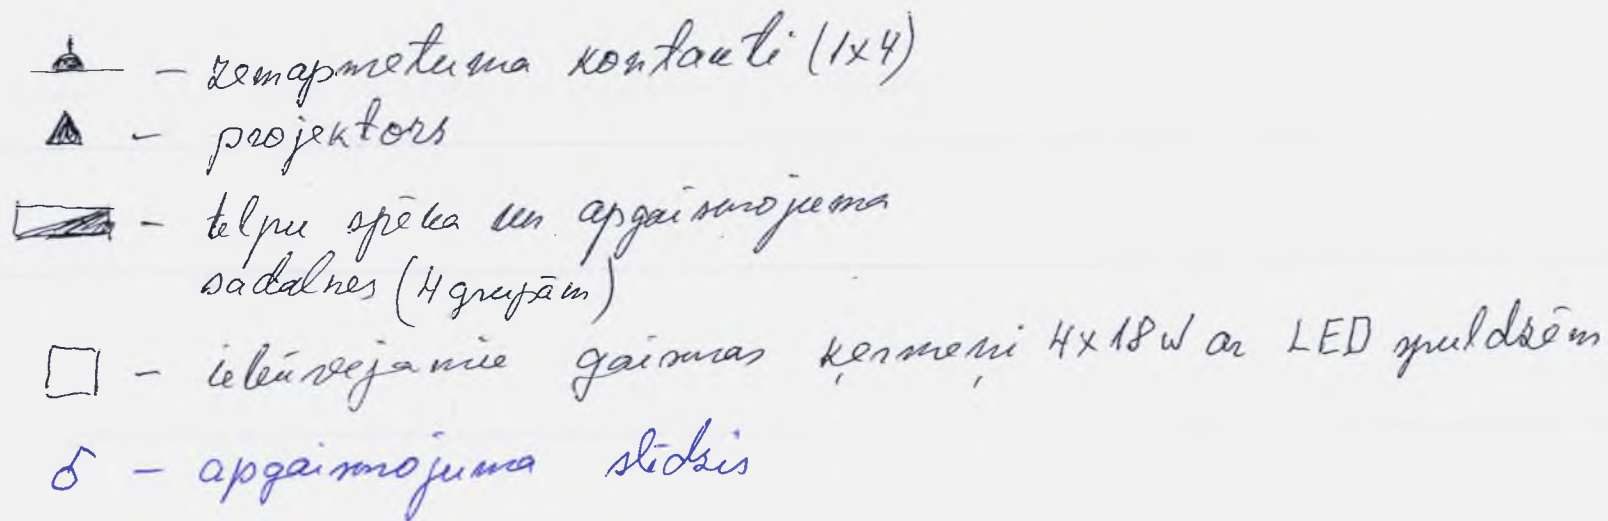 – zemapmetuma kontakti (1x4)
– projektors
– telpu spēka un apgaismojuma
sadalnes (4 grupām)
– iebūvējamie gaismas ķermeņi 4x18W ar LED spuldzēm
– apgaismojuma slēdzis